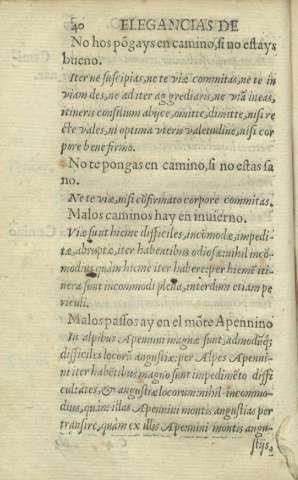 40 ELEGANCIAS DE
No hos põgays en camino, si no estays
bueno.
Iter ne suscipias, ne te viæ commitas, ne te in
viam des, ne ad iter aggrediaris, ne viã ineas,
itineris consilium abijce, omitte, dimitte, nisi re
cte vales, ni optima vteris valetudine, nisi cor
pore bene firmo.
No te pongas en camino, si no estas sa
no.
Ne te viæ, nisi cõfirmato corpore commitas.
Malos caminos hay en inuierno.
Viæ sunt hieme difficiles, incõmodæ, impedi-
tæ, abruptæ, iter habentibus odiosæ: nihil incõ-
modius quàm hieme iter habere: per hiemẽ iti-
nera sunt incommodi plena, interdum etiam pe
riculi.
Malos passos ay en el mõte Apennino
In alpibus Apennini magnæ sunt, admodũq;
difficiles locorũ angustiæ: per Alpes Apenni-
ni iter habẽtibus magno sunt impedimẽto diffi
cultates, & angustiæ locorum: nihil incommo-
dius, quàm illas Apennini montis angustias per
transire, quam ex illis Apennini montis angu-
stijs